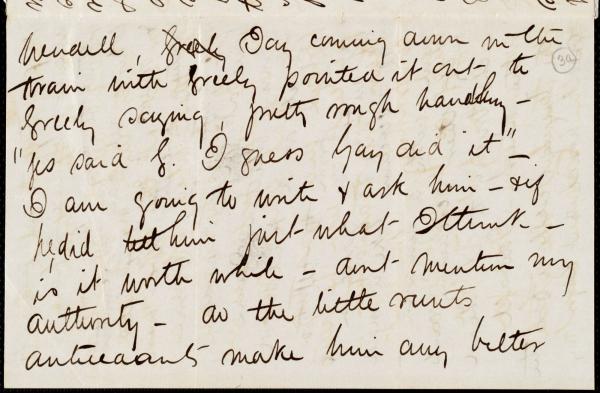 Wendell, Greely Day coming down in the
train with Greely pointed it out to
Greely saying, pretty rough handling -
"yes said G. I guess Gay did it" -
I am going to write & ask him - & if
he did tell him just what I think -
is it worth while - don't mention my
authority - do the little runts
make him any better
3a